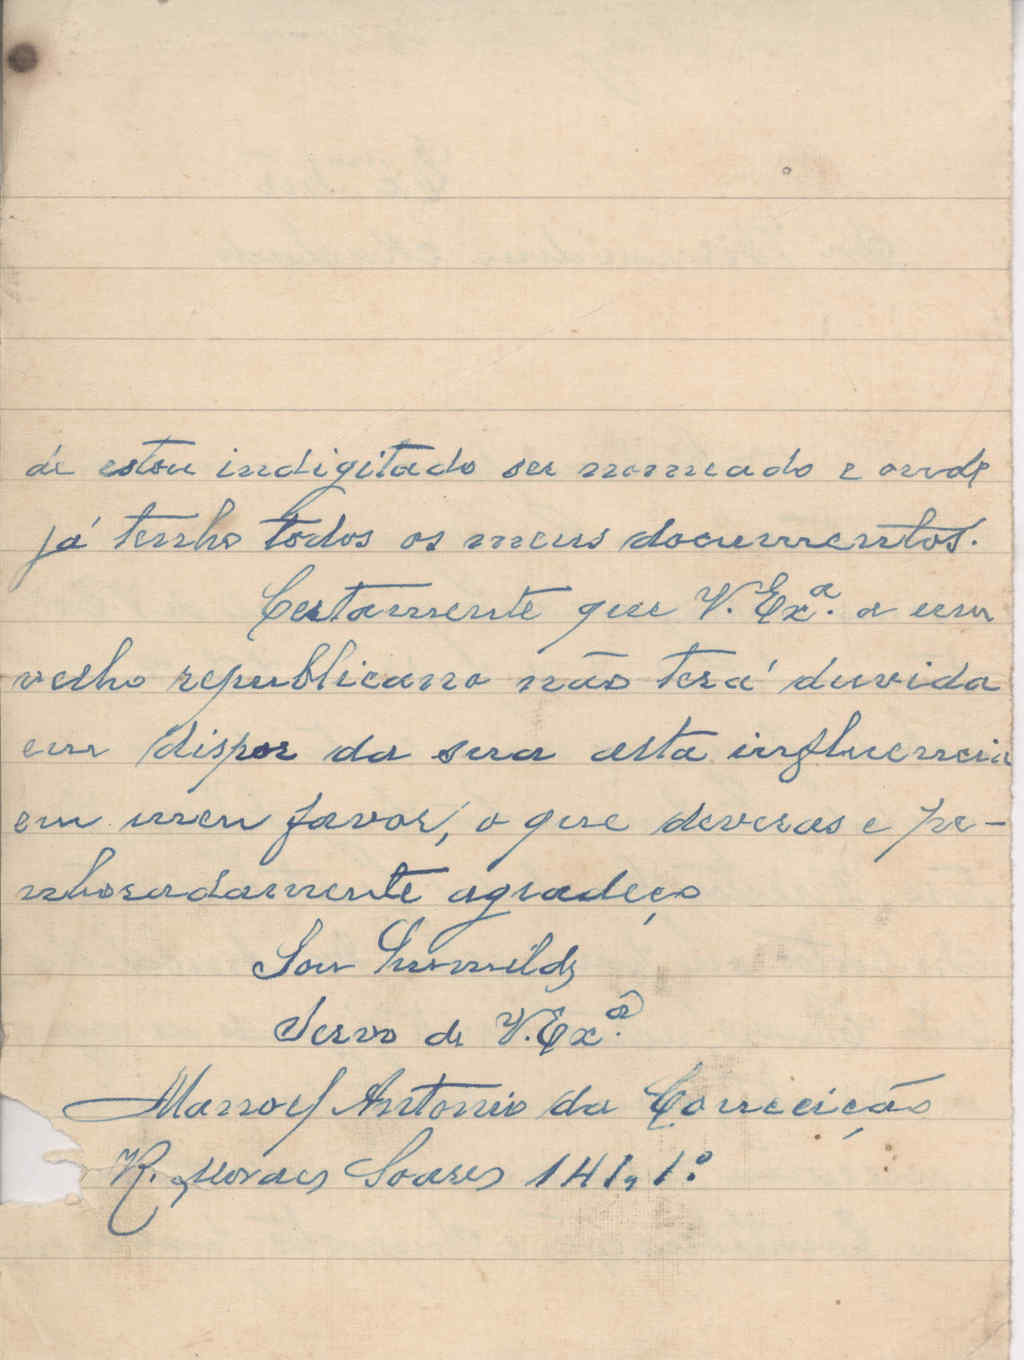 de estou indigitado ser nomeado e onde
já tenho todos os meus documentos.
Certamente que V. Exª. a um
velho republicano não terá duvida
em dispor da sua alta influencia
em meu favor, o que deveras e pe-
nhoradamente agradeço
Sou humilde
Servo de V. Exª.
Manoel Antonio da Conceição
R. Moraes Soares 141, 1º